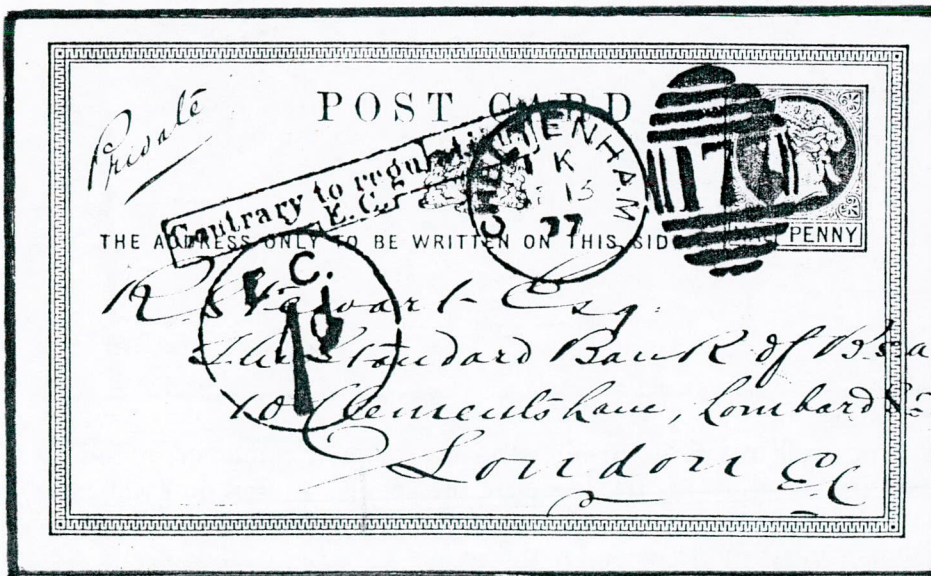 Private
POST CARD
Contrary to regulati
E.C.
CHELTENHAM
K
15
77
THE ADDRESS ONLY TO BE WRITTEN ON THIS SID
PENNY
E.C.
1d
R Stewart Esq.
The Standard Bank of
10 Clements Lane, Lombard St
London EC